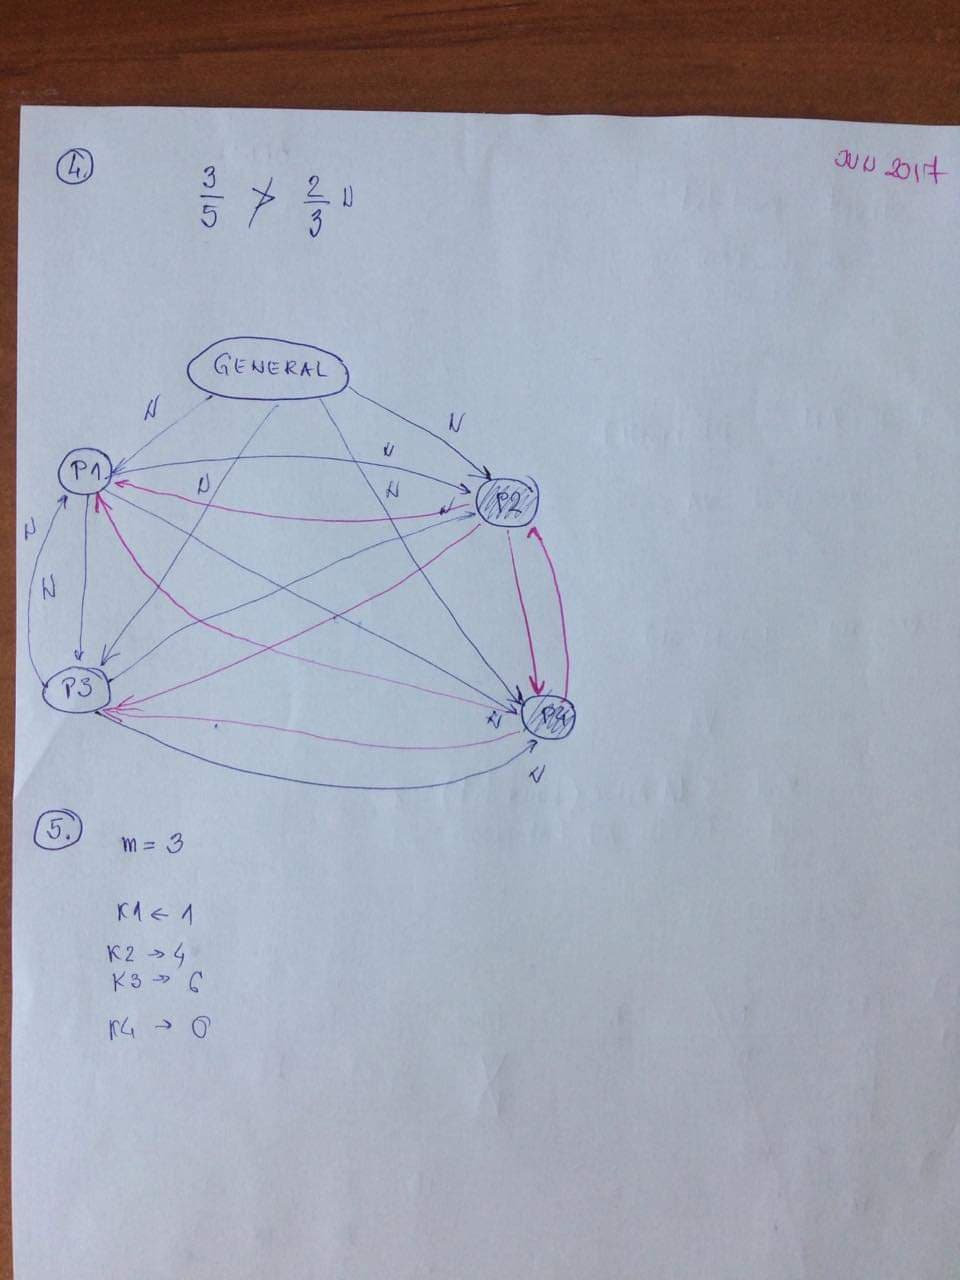 4.
JUN 2017
3/5 ≯ 2/3 N
GENERAL
N
N
P1
N
N
N
P2
N
N
N
P3
N
P4
N
5.
m = 3
K1 ← 1
K2 → 4
K3 → 6
K4 → 0